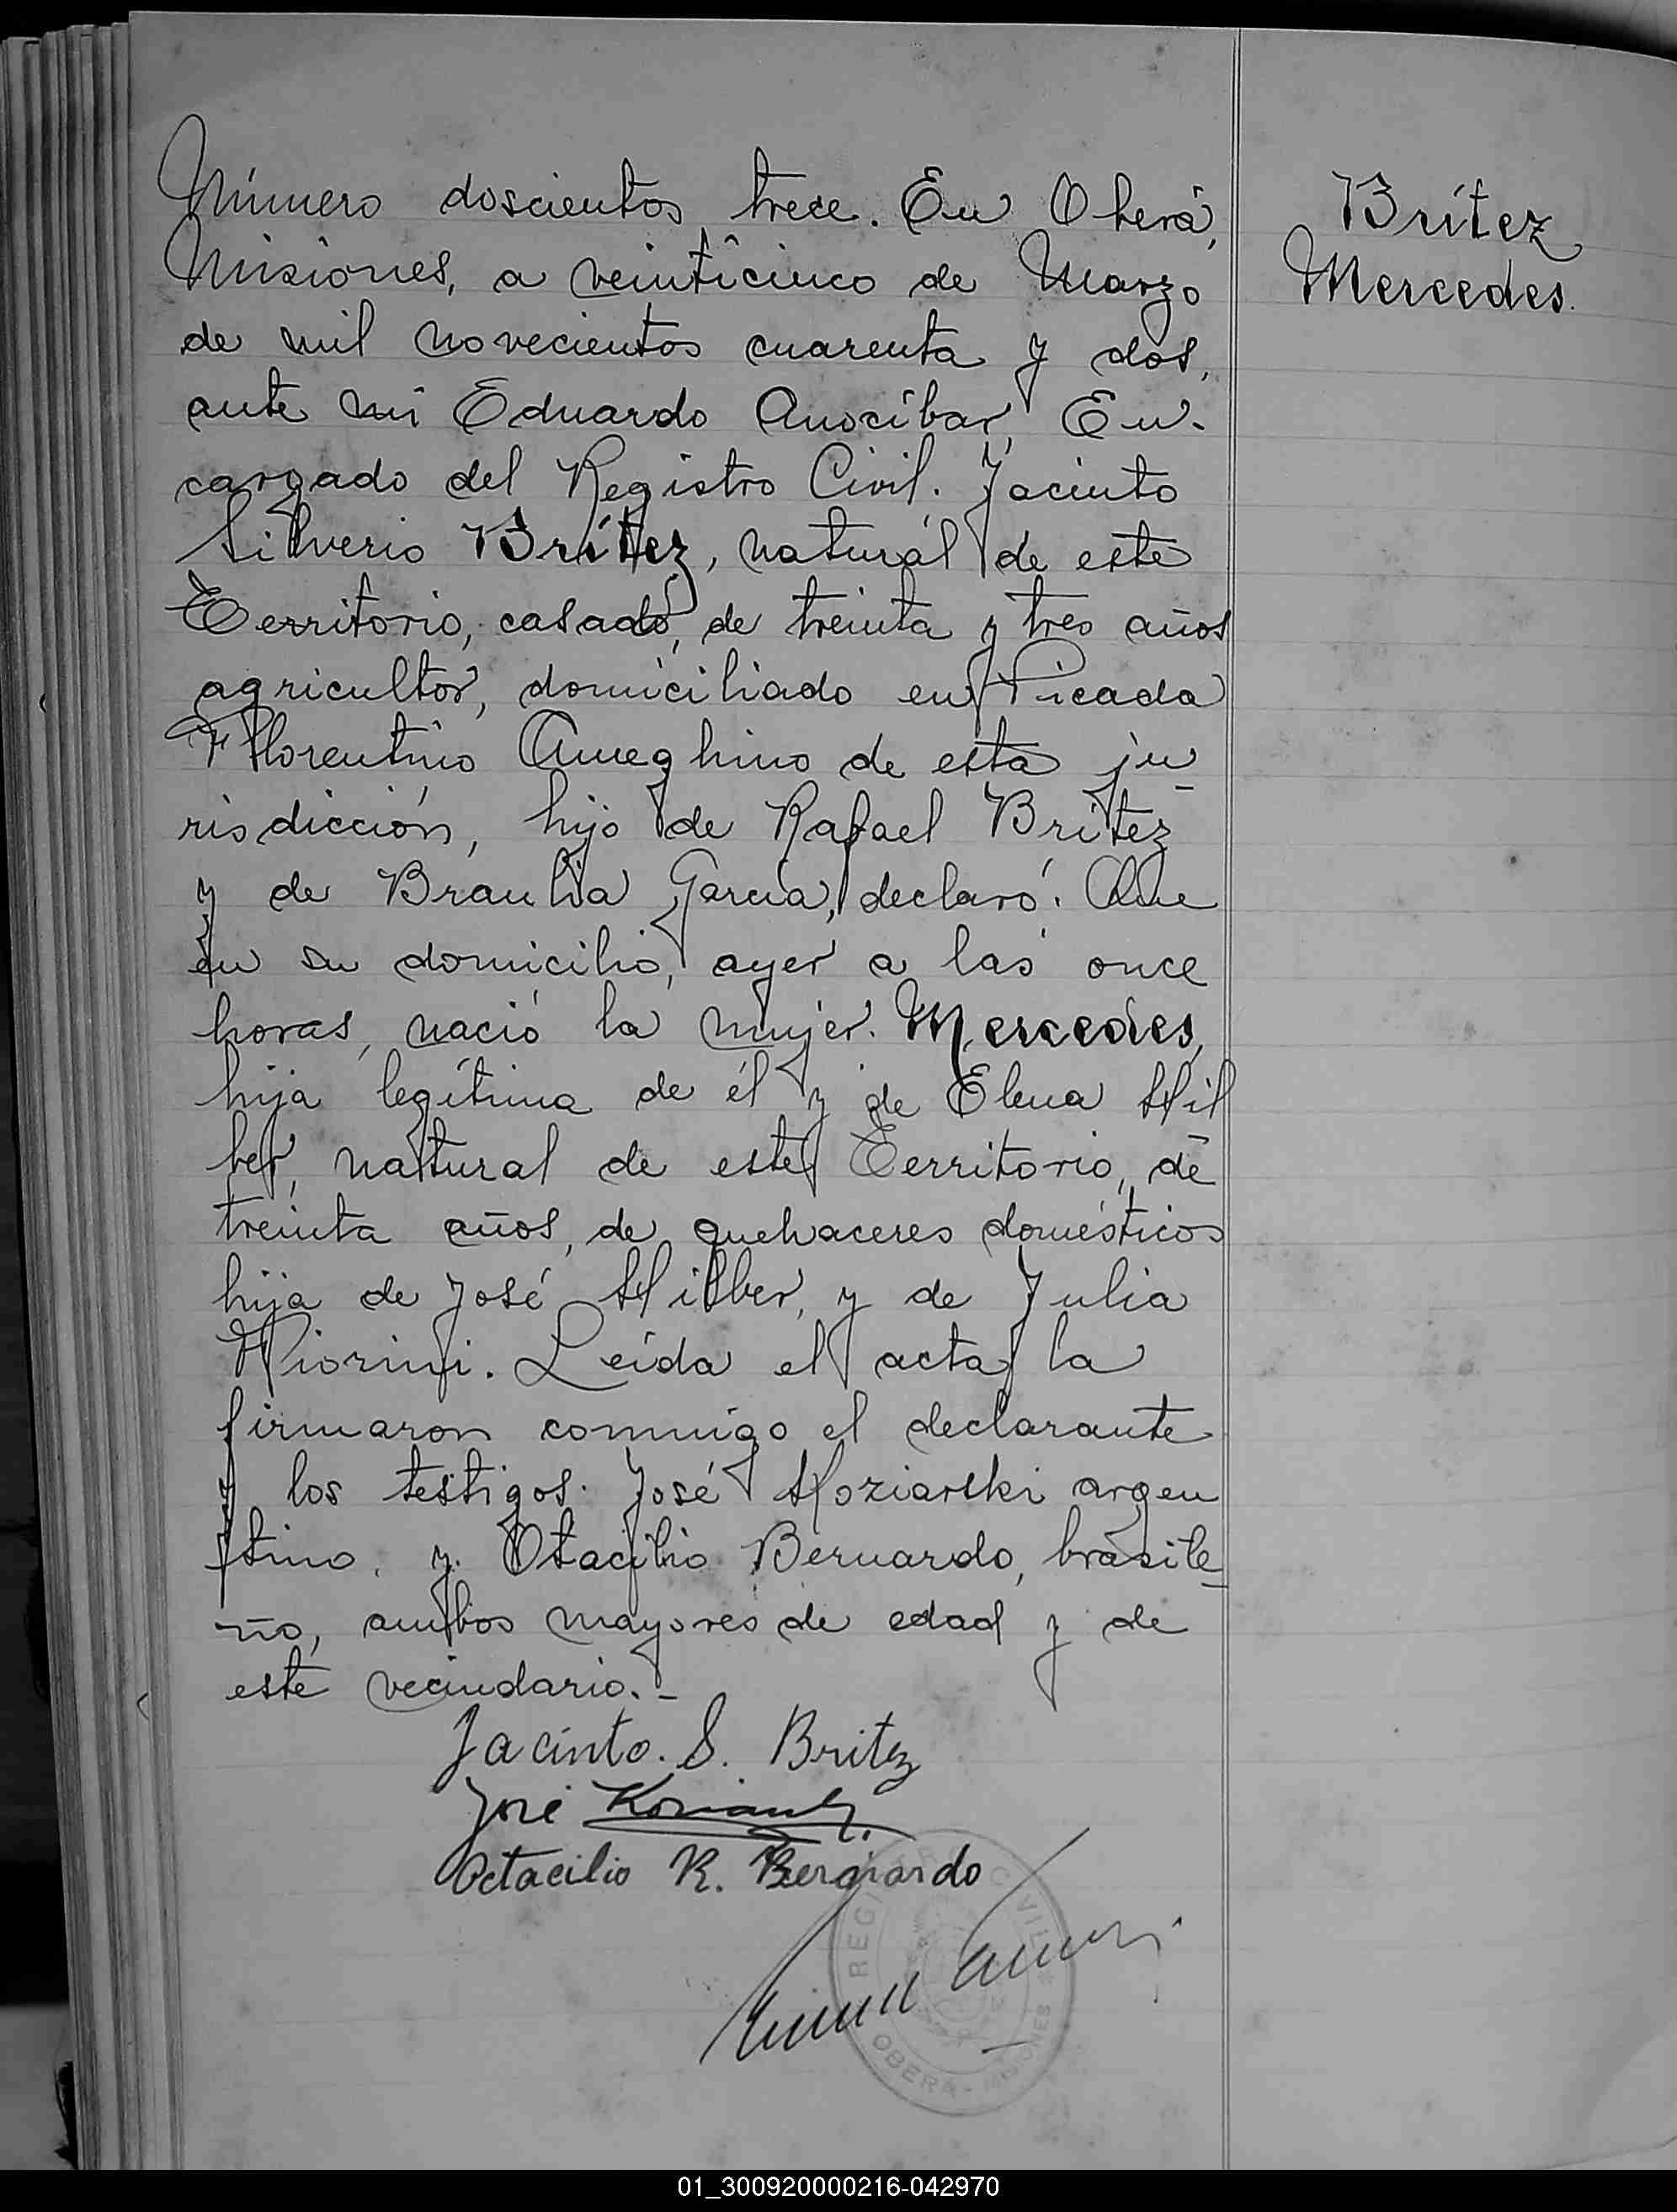 Número doscientos trece. En Oberá,
Misiones, a veinticinco de Marzo
de mil novecientos cuarenta y dos,
ante mí Eduardo Anocíbar, En-
cargado del Registro Civil. Jacinto
Silverio Brítez, natural de este
Territorio, casado, de treinta y tres años
agricultor, domiciliado en Picada
Florentino Ameghino de esta ju-
risdicción, hijo de Rafael Britez
y de Braulia García, declaró: Que
en su domicilio, ayer a las once
horas, nació la mujer. Mercedes,
hija legítima de él y de Elena Hil
ber, natural de este Territorio, de
treinta años, de quehaceres domésticos
hija de José Hilber, y de Julia
Fiorini. Leída el acta la
firmaron conmigo el declarante
y los testigos. José Koziarski argen
tino, y Otacilio Bernardo, brasile-
ño, ambos mayores de edad y de
este vecindario.-
Jacinto. S. Britez
José
Octacilio R. Bernardo
REGISTRO CIVIL
OBERA - MISIONES
Brítez
Mercedes.
01_300920000216-042970